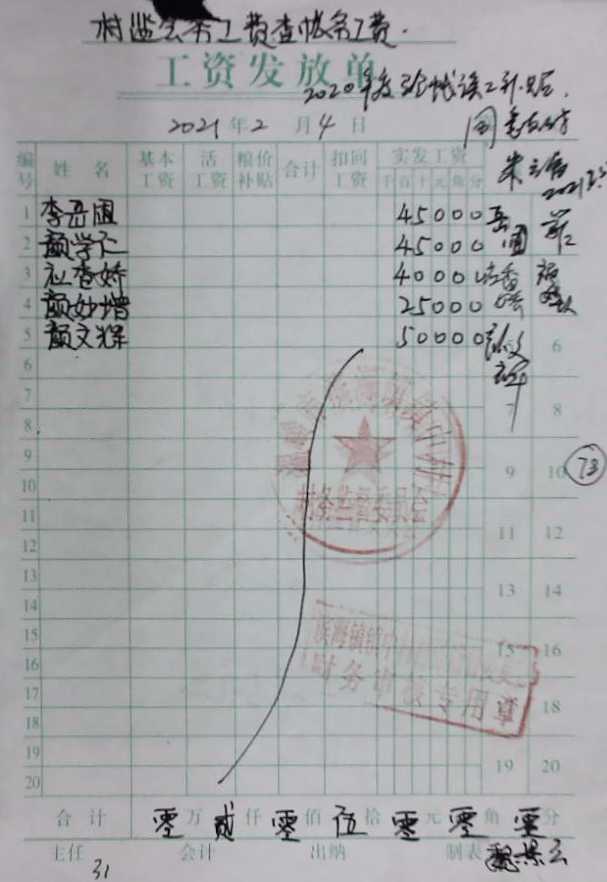 村监会务工费查帐务工费.
工资发放单
2020年度
2021年2月4日
编号 姓名 基本工资 活工资 粮价补贴 合计 扣回工资 实发工资 千百十元角分
1 李岳国 45000 岳国
2 颜学仁 45000
3 应香娇 40000 应香娇
4 颜妙增 25000
5 颜文辉 50000 颜文辉 6
6
7 7 8
8
9 9 10 73
10
11 11 12
12
13 13 14
14
15 15 16
16
17 18
18
19 19 20
20
村务监督委员会
财务审核专用章
合计 零万贰仟零佰伍拾零元零角零分
主任 会计 出纳 制表
31